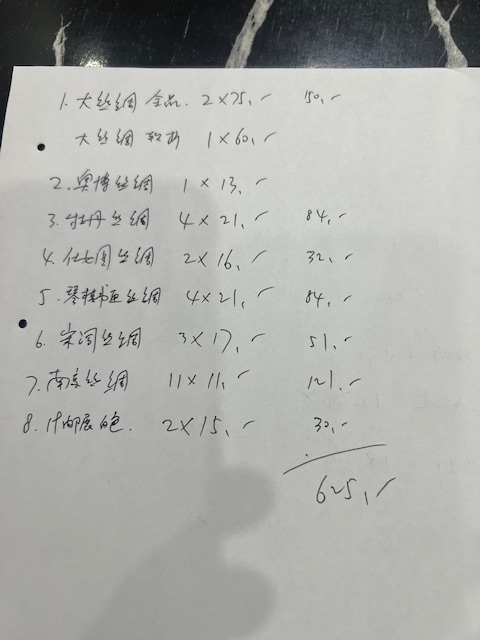 1. 大丝绸 全品. 2×75,- 150,-
大丝绸 软折 1×60,-
2. 奥博丝绸 1×13,-
3. 牡丹丝绸 4×21,- 84,-
4. 仕女图丝绸 2×16,- 32,-
5. 琴棋书画丝绸 4×21,- 84,-
6. 宋词丝绸 3×17,- 51,-
7. 南京丝绸 11×11,- 121,-
8. 2×15,- 30,-
625,-